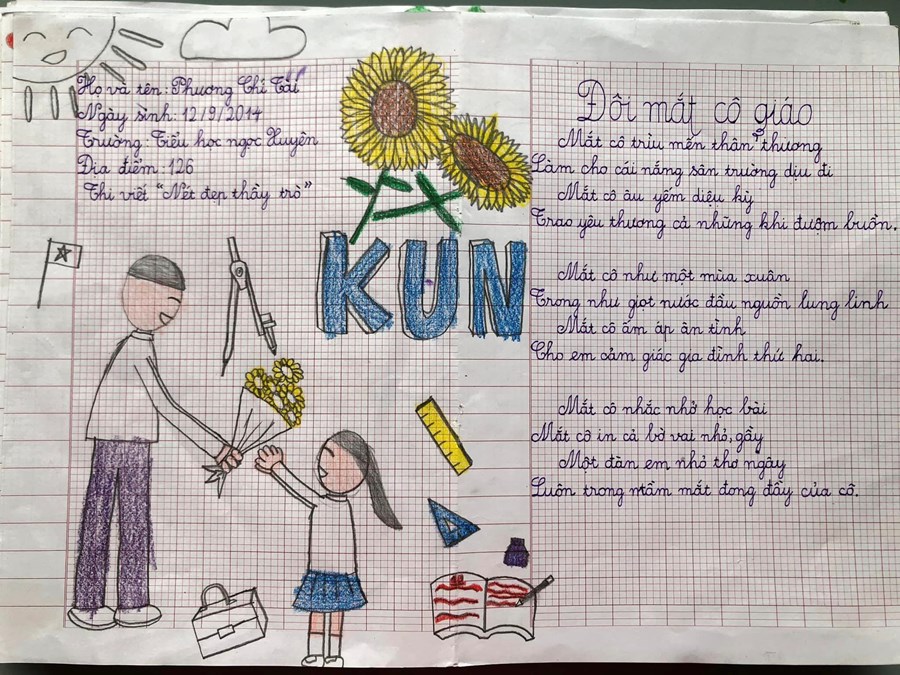 Họ và tên: Phương Chí Tài
Ngày sinh: 12/9/2014
Trường: Tiểu học ngọc Xuyên
Địa điểm: 126
Thi viết "Nét đẹp thầy trò"
KUN
10
Đôi mắt cô giáo
Mắt cô trìu mến thân thương
Làm cho cái nắng sân trường dịu đi
Mắt cô âu yếm diệu kỳ
Trao yêu thương cả những khi đượm buồn.
Mắt cô như một mùa xuân
Trong như giọt nước đầu nguồn lung linh
Mắt cô ấm áp ân tình
Cho em cảm giác gia đình thứ hai.
Mắt cô nhắc nhở học bài
Mắt cô in cả bờ vai nhỏ, gầy
Một đàn em nhỏ thơ ngây
Luôn trong mầm mắt đong đầy của cô.